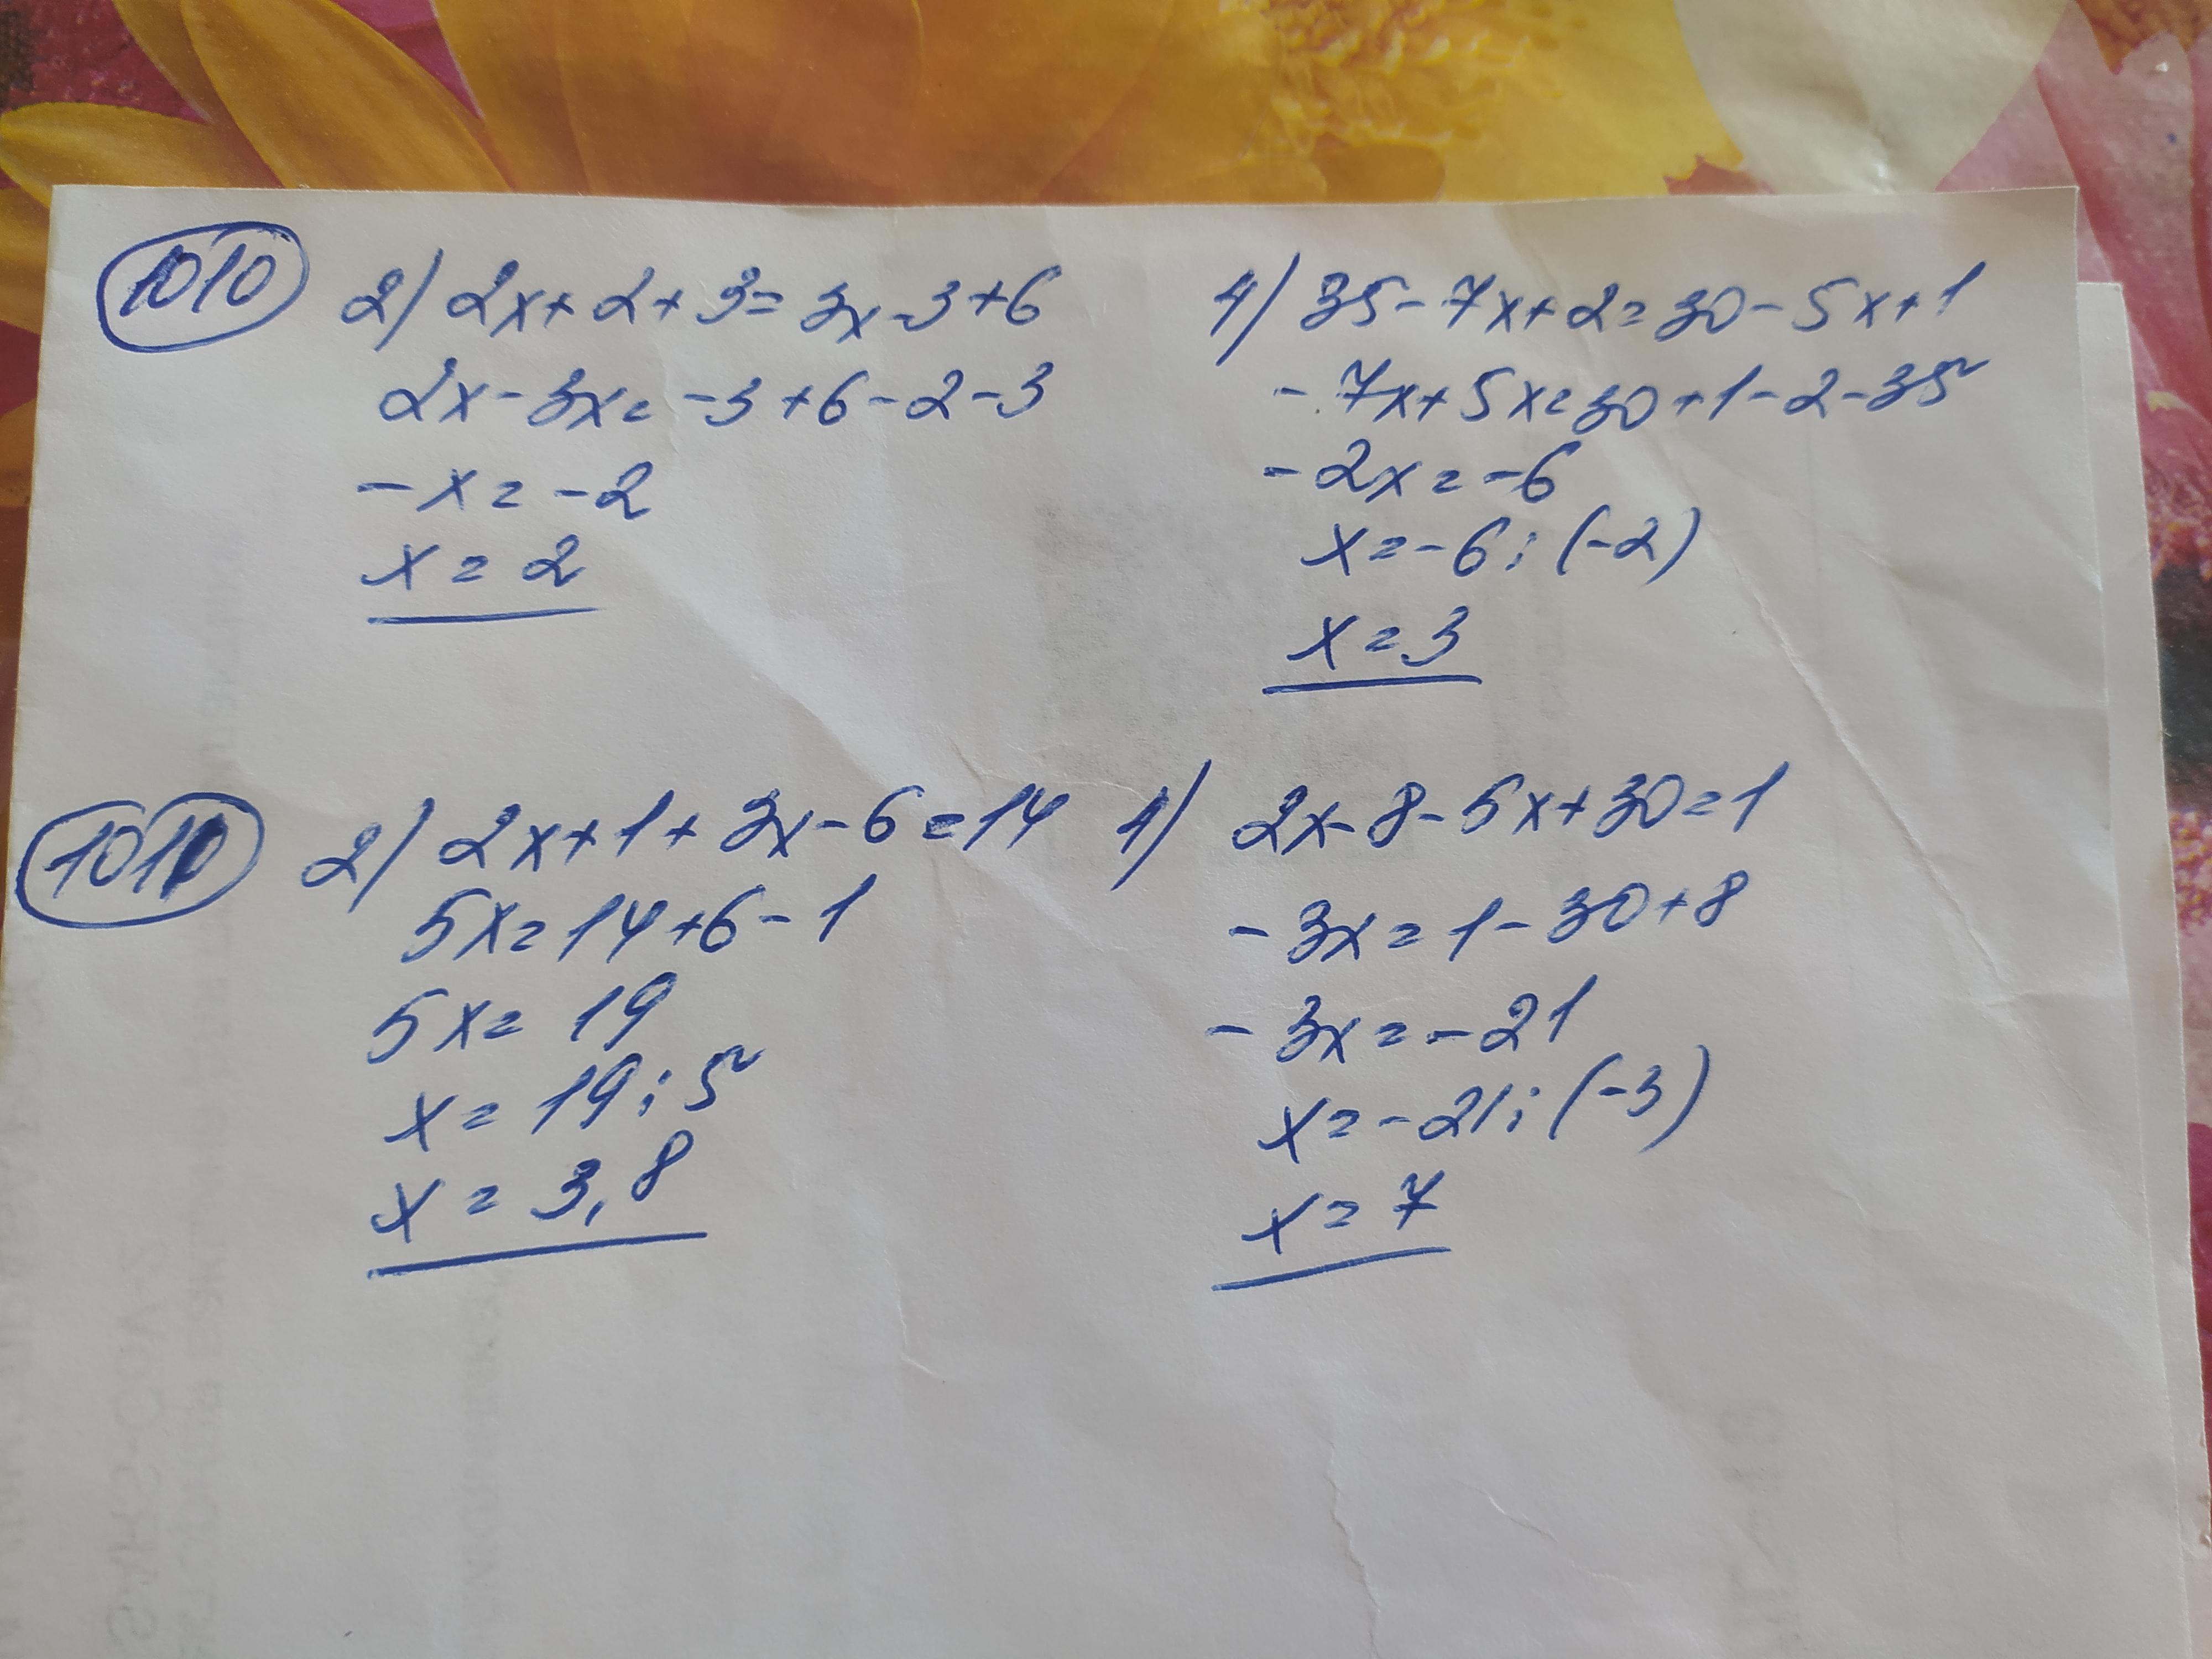 1010
2) 2x+2+3=3x-3+6
2x-3x=-3+6-2-3
-x=-2
x=2
4) 35-7x+2=30-5x+1
-7x+5x=30+1-2-35
-2x=-6
x=-6:(-2)
x=3
1011
2) 2x+1+3x-6=14
5x=14+6-1
5x=19
x=19:5
x=3,8
4) 2x-8-5x+30=1
-3x=1-30+8
-3x=-21
x=-21:(-3)
x=7
SARS-COV-2